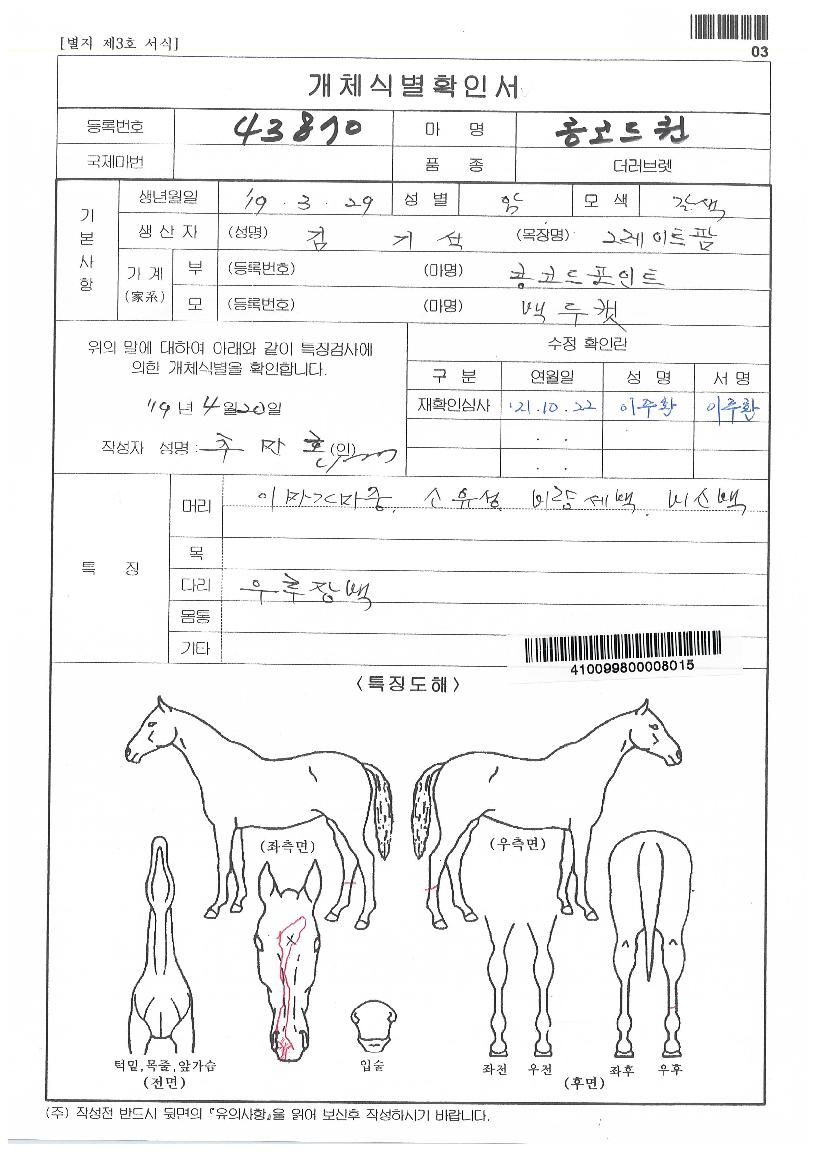 [별지 제3호 서식]
03
개체식별확인서
등록번호 43810 마 명 콩코드퀸
국제마번 품 종 더러브렛
기본사항
생년월일 '19 . 3 . 29 성 별 암 모 색 갈색
생 산 자 (성명) 김 기 석 (목장명) 그레이트팜
가 계 (家系) 부 (등록번호) (마명) 콩코드포인트
모 (등록번호) (마명) 백두캣
위의 말에 대하여 아래와 같이 특징검사에
의한 개체식별을 확인합니다.
'19 년 4 월 20 일
작성자 성명 : (인)
수정 확인란
구 분 연월일 성 명 서 명
재확인심사 '21.10.22 이주환 이주환
. .
. .
특 징
머리 이마가마중, 소유성 비량세백, 비신백
목
다리 우후장백
몸통
기타
410099800008015
<특징도해>
(좌측면) (우측면)
턱밑,목줄,앞가슴
(전면)
입술
좌전 우전 좌후 우후
(후면)
(주) 작성전 반드시 뒷면의 『유의사항』을 읽어 보신후 작성하시기 바랍니다.